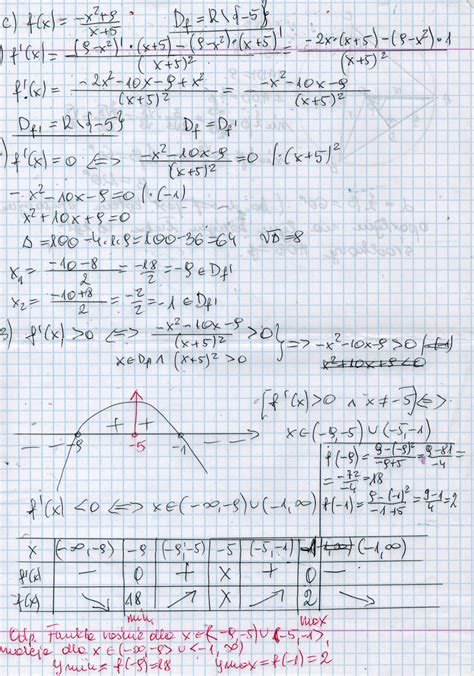 c) f(x) = (-x²+9)/(x+5)   D_f = R\{-5}
) f'(x) = ((9-x²)'·(x+5) - (9-x²)·(x+5)')/(x+5)² = (-2x·(x+5) - (9-x²)·1)/(x+5)²
f'(x) = (-2x²-10x-9+x²)/(x+5)² = (-x²-10x-9)/(x+5)²
D_f' = R\{-5}   D_f = D_f'
) f'(x)=0 <=> (-x²-10x-9)/(x+5)² = 0 |·(x+5)²
-x²-10x-9=0 |·(-1)
x²+10x+9=0
Δ=100-4·1·9=100-36=64   √Δ=8
x₁ = (-10-8)/2 = -18/2 = -9 ∈ D_f'
x₂ = (-10+8)/2 = -2/2 = -1 ∈ D_f'
3) f'(x)>0 <=> (-x²-10x-9)/(x+5)² > 0 } => -x²-10x-9>0 |·(-1)
x∈D_f ∧ (x+5)²>0   x²+10x+9<0
[f'(x)>0 ∧ x≠-5] <=>
+ +
-9 -5 -1
x∈(-9,-5)∪(-5,-1)
f(-9) = (9-(-9)²)/(-9+5) = (9-81)/(-4) =
= -72/-4 = 18
f(-1) = (9-(-1)²)/(-1+5) = (9-1)/4 = 2
f'(x)<0 <=> x∈(-∞,-9)∪(-1,∞)
x | (-∞,-9) | -9 | (-9,-5) | -5 | (-5,-1) | -1 | (-1,∞)
f'(x) | - | 0 | + | X | + | 0 | -
f(x) | ↘ | 18 | ↗ | X | ↗ | 2 | ↘
min max
Odp. Funkcja rośnie dla x∈<-9,-5)∪(-5,-1>,
maleje dla x∈(-∞,-9>∪<-1,∞)
y min = f(-9)=18   y max = f(-1)=2